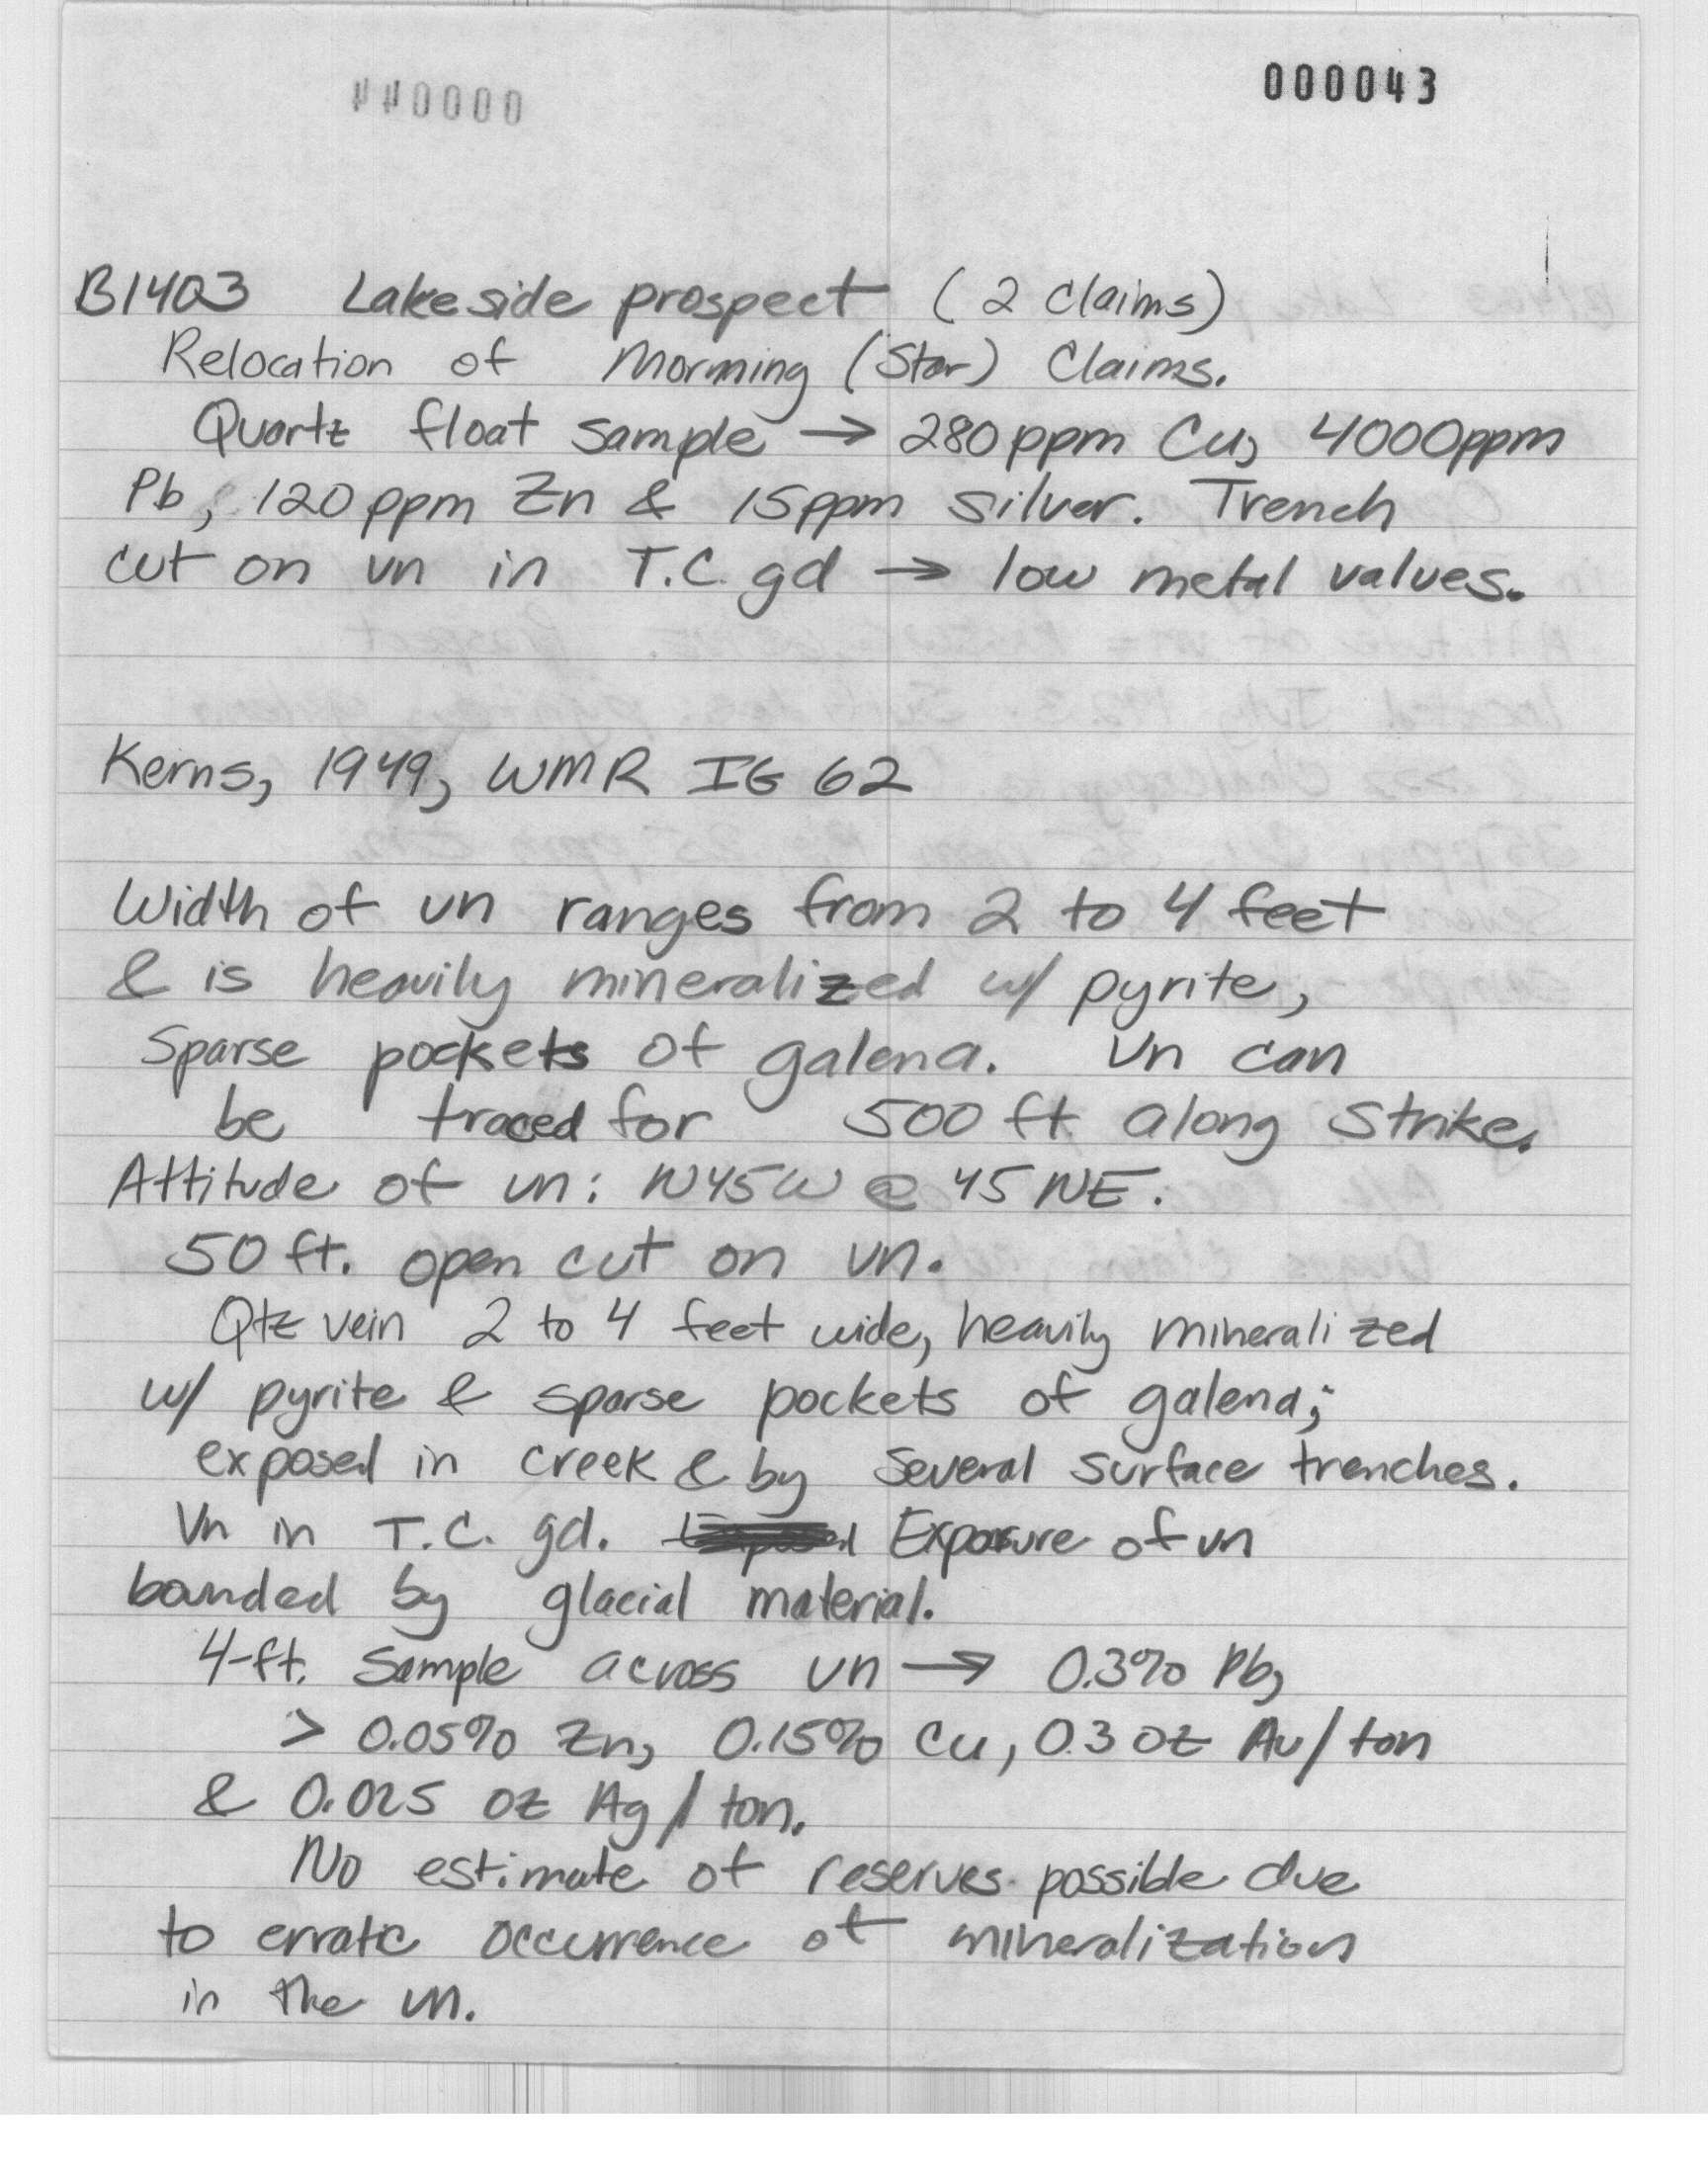 000043
B1403 Lakeside prospect (2 Claims)
Relocation of Morning (Star) Claims.
Quartz float sample → 280 ppm Cu, 4000ppm
Pb, 120 ppm Zn & 15ppm silver. Trench
cut on vn in T.C. gd → low metal values.
Kerns, 1949, WMR IG 62
Width of vn ranges from 2 to 4 feet
& is heavily mineralized w/ pyrite,
Sparse pockets of galena. Vn can
be traced for 500 ft along strike.
Attitude of vn: N45W @ 45 NE.
50 ft. open cut on vn.
Qtz vein 2 to 4 feet wide, heavily mineralized
w/ pyrite & sparse pockets of galena;
exposed in creek & by several surface trenches.
Vn in T.C. gd. Exposure of vn
bounded by glacial material.
4-ft. sample across vn → 0.3% Pb,
> 0.05% Zn, 0.15% Cu, 0.3 oz Au/ton
& 0.025 oz Ag/ton.
No estimate of reserves possible due
to erratic occurrence of mineralization
in the vn.